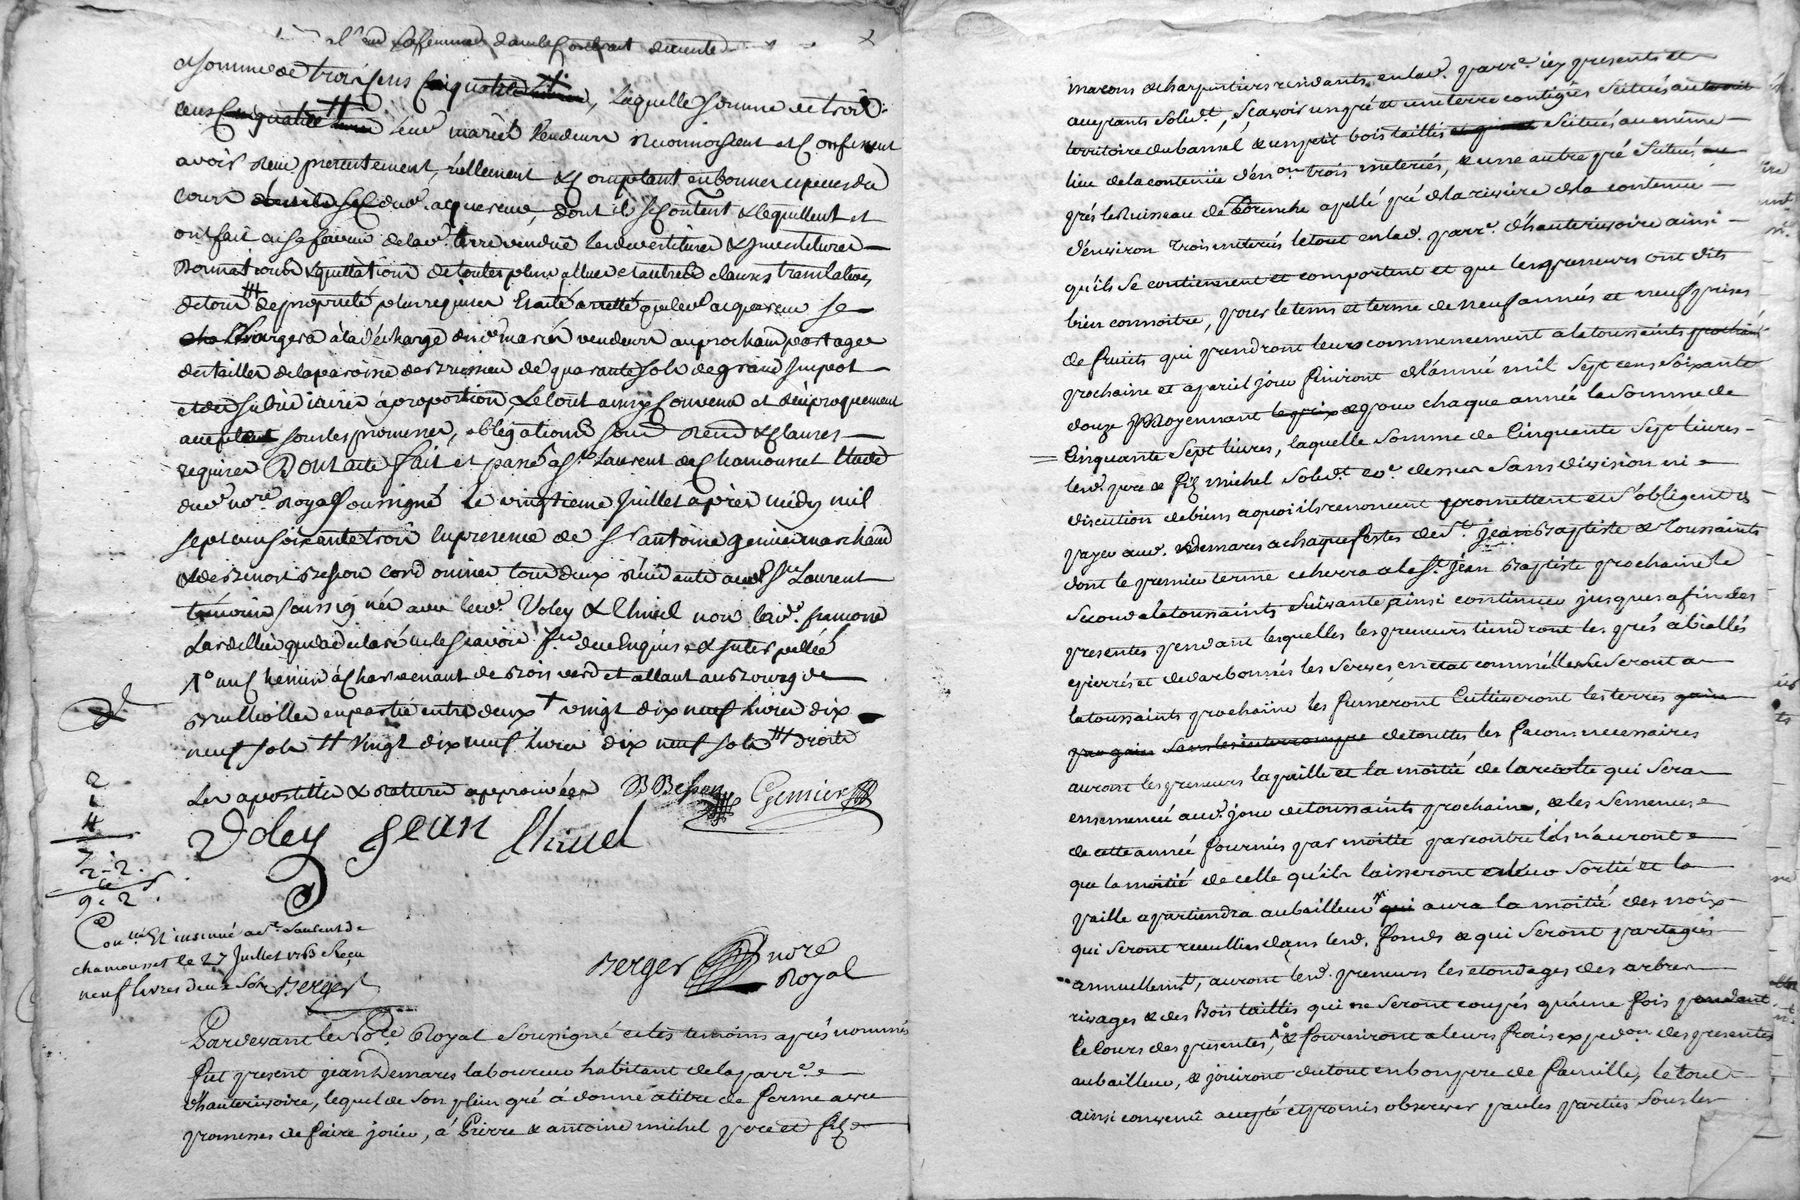 somme de trois cens, laquelle somme de trois
cens mariés vendeurs reconnoissent et confessent
avoir reçu presentement, réellement & comptant en bonnes especes du
cours dud. acquereur, dont ils se contentent & le quittent et
ont fait en sa faveur de lad. terre vendue les devestitures & investitures
de propriété plus requises traité arretté que led. acquereur se
chargera à la décharge desd. mariés vendeurs au prochain partage
des tailles de la paroisse de Brussieu de quarante sols de grand impot
et des subsidiaires a proportion, Le tout ainsy convenu et réciproquement
accepté sous les promesses, obligations, soum. renon. & clauses
requises Dont acte fait et passé a St. Laurent de Chamousset Etude
dud. nore. Royal soussigné le vingtieme juillet après midy mil
sept cens soixante trois En presence de Sr. antoine genier marchand
& de Benoit Besson cordonnier tous deux residants aud. St. Laurent
témoins soussignés avec lesd. Voley & non lad. francoise
qui a declaré ne le sçavoir fre. de ce Enquise & interpellée
1o. un chemin à char venant de Bois verd et allant au Bourg de
Brullioles en partie entre deux † vingt dix neuf livres dix
neuf sols # vingt dix neuf livres dix neuf sols # droits
Les apostilles & ratures approuvées BBesson Genier
Voley jean
2
4
7
2-2.
9-2.
Con.lé Et insinué a St. Laurent de
chamousset le 27 Juillet 1763 Reçu
neuf livres deux sols Berger
Berger nore
Royal
Pardevant le No.re Royal soussigné et les temoins après nommés
fut present jean Demares laboureur habitant de la parr.e
d'hauterivoire, lequel de son plein gré á donné a titre de ferme avec
promesses de faire jouir, á Pierre & antoine michel pere et fils
macons & charpentiers residants en lad. parr.e icy presents et
acceptants solid.t, sçavoir un pré et une terre contigus scitués
territoire du bannel & un petit bois taillis scitué au même
lieu de la contenue d'en.on trois meterées, & une autre pré scitué,
prés le Ruisseau de apellé pré de la riviére de la contenue
d'environ trois meterées le tout en lad. parr.e d'hauterivoire ainsi
qu'ils se contiennent et comportent et que les preneurs ont dits
bien connoitre, pour le tems et terme de neuf années et neuf prises
de fruits qui prendront leurs commencement a la toussaints
prochaine et a pareil jour finiront de l'année mil sept cens soixante
douze Moyennant & pour chaque année la somme de
Cinquante sept livres, laquelle somme de Cinquante sept livres
lesd. pere & fils michel solid.t co.e dessus sans division ni
discution de biens a quoi ils renoncent promettent et s'obligent de
payer aud. Demares a chaque festes de St. jean Baptiste & toussaints
dont le premier terme echerra a la St. jean Baptiste prochaine le
second a la toussaints suivante ainsi continuer jusques a fin des
presentes pendant lesquelles les preneurs tiendront les prés
épierrés et les serves en etat comme elles se seront a
la toussaints prochaine les fumeront Cultiveront les terres
de touttes les facons necessaires
auront les preneurs la paille et la moitié de la recolte qui sera
ensemencé aud. jour de toussaints prochaine, & les semences
de cette année fournies par moitié par contre ils n'auront
que la moitié de celle qu'ils laisseront a leur sortie et la
paille apartiendra au bailleur aura la moitié des noix
qui seront recuellies dans lesd. fonds & qui seront partagées
annuellem.t, auront lesd. preneurs les etondages des arbres
rivages & des Bois taillis qui ne seront coupés qu'une fois pendant
le cours des presentes, & fourniront a leurs frais exped.on des presentes
au bailleur, & jouiront du tout en bon pere de famille, le tout
ainsi convenu accepté et promis observer par les parties sous les